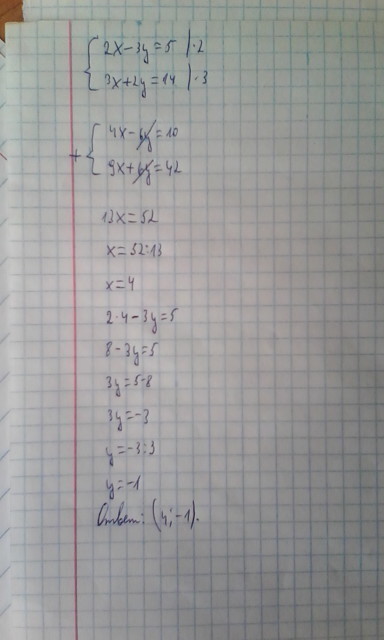 2x-3y=5 |·2
3x+2y=14 |·3
4x-6y=10
+
9x+6y=42
13x=52
x=52:13
x=4
2·4-3y=5
8-3y=5
3y=5-8
3y=-3
y=-3:3
y=-1
Ответ: (4;-1).